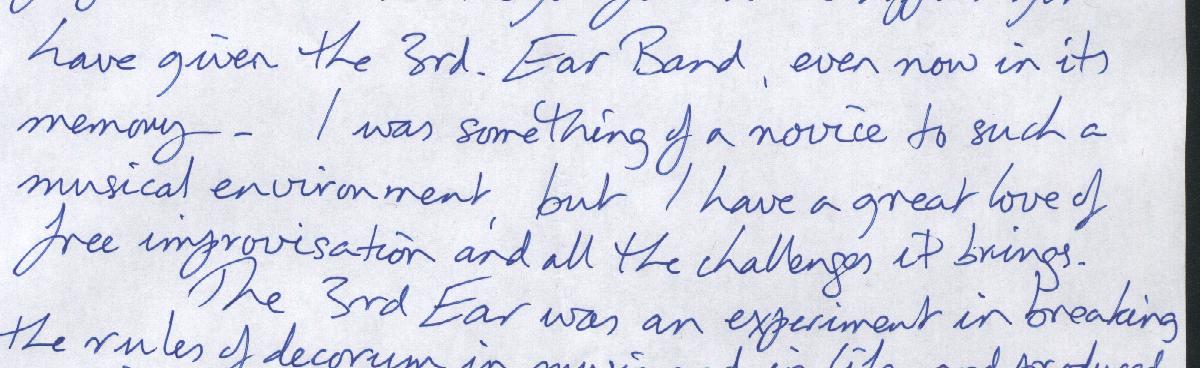 have given the 3rd. Ear Band, even now in its
memory - I was something of a novice to such a
musical environment, but I have a great love of
free improvisation and all the challenges it brings.
The 3rd Ear was an experiment in breaking
the rules of decorum in music and in life, and produced